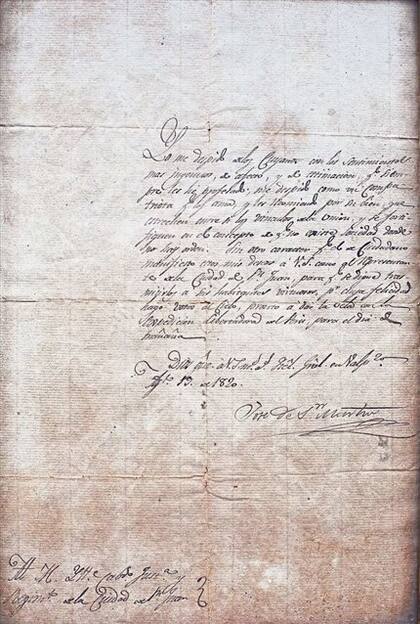 Yo me despido de los Cuyanos con los sentimientos
mas ingenuos, de afecto, y de estimacion, q.e siem
pre les he profesado; me despido como un compa
triota q.e los ama, y les recomienda por su bien, que
estrechen entre si los vinculos de la Union, y se forti
fiquen en el concepto de q.e no existe livertad donde
no hay orden. Sin otro caracter q.e el de Ciudadano
manifiesto mis deseos à V.S. como q.e representan
te de la Ciudad de S.n Juan, para q.e se digne tras
mitirlos a sus habitantes virtuosos, p.r cuya felicidad
hago votos al Cielo, proximo a dar la vela con la
Expedicion Libertadora del Perù, para el dia de
mañana
Dios gūe. à V.S. m.s a.s Q.el Gral. en Valp.o
Ag.to 19. de 1820.
Jose de S.n Martin
Al M. Il.tre Cabdo Just.a y
Regim.to de la Ciudad de S.n Juan